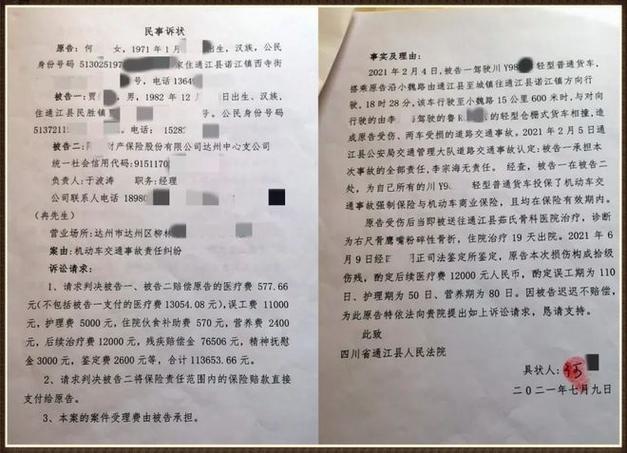 民事诉状
原告：何 女，1971年1月 出生，汉族，公民
身份号码 51302519 家住通江县诺江镇西寺街
号，电话 1364
被告一：贾 ，男，1982年12 日出生，汉族，
住通江县民胜镇 公民身份号码
5137211 电话： 1528
被告二： 财产保险股份有限公司达州中心支公司
统一社会信用代码：9151170
负责人：于波涛 职务：经理
公司联系人电话 18980
（冉先生）
营业场所：达州市达川区柳林
案由：机动车交通事故责任纠纷
诉讼请求：
1、请求判决被告一、被告二赔偿原告的医疗费 577.66
元（不包括被告一支付的医疗费 13054.08），误工费 11000
元，护理费 5000元，住院伙食补助费 570元，营养费 2400
元，后续治疗费 12000元，残疾赔偿金 76506元，精神抚慰
金 3000元，鉴定费 2600元等，合计 113653.66元。
2、请求判决被告二将保险责任范围内的保险赔款直接
支付给原告。
3、本案的案件受理费由被告承担。
事实及理由：
2021年2月4日，被告一驾驶川Y98 轻型普通货车，
搭乘原告沿小魏路由通江县至坡镇往通江县诺江镇方向行
驶，18时28分，该车行驶至小魏路15公里600米时，与对向
行驶的由李 驾驶的鲁R 的轻型仓栅式货车相撞，造
成原告受伤、两车受损的道路交通事故。2021年2月5日通
江县公安局交通管理大队道路交通事故认定：被告一承担本
次事故的全部责任，李宗海无责任。 经查，被告一在被告二
处，为自己所有的川Y9 轻型普通货车投保了机动车交
通事故强制保险与机动车商业保险，且均在保险有效期内。
原告受伤后当即被送往通江县茹氏骨科医院治疗，诊断
为右尺骨鹰嘴粉碎性骨折，住院治疗19天出院。2021年6
月9日经 司法鉴定所鉴定，原告本次损伤构成十级
伤残，酌定后续医疗费 12000元人民币，酌定误工期为 110
日、护理期为50日、营养期为80日。因被告迟迟不赔偿，
为此原告特依法向贵院提出如上诉讼请求，恳请支持。
此致
四川省通江县人民法院
具状人：何
二〇二一年七月九日